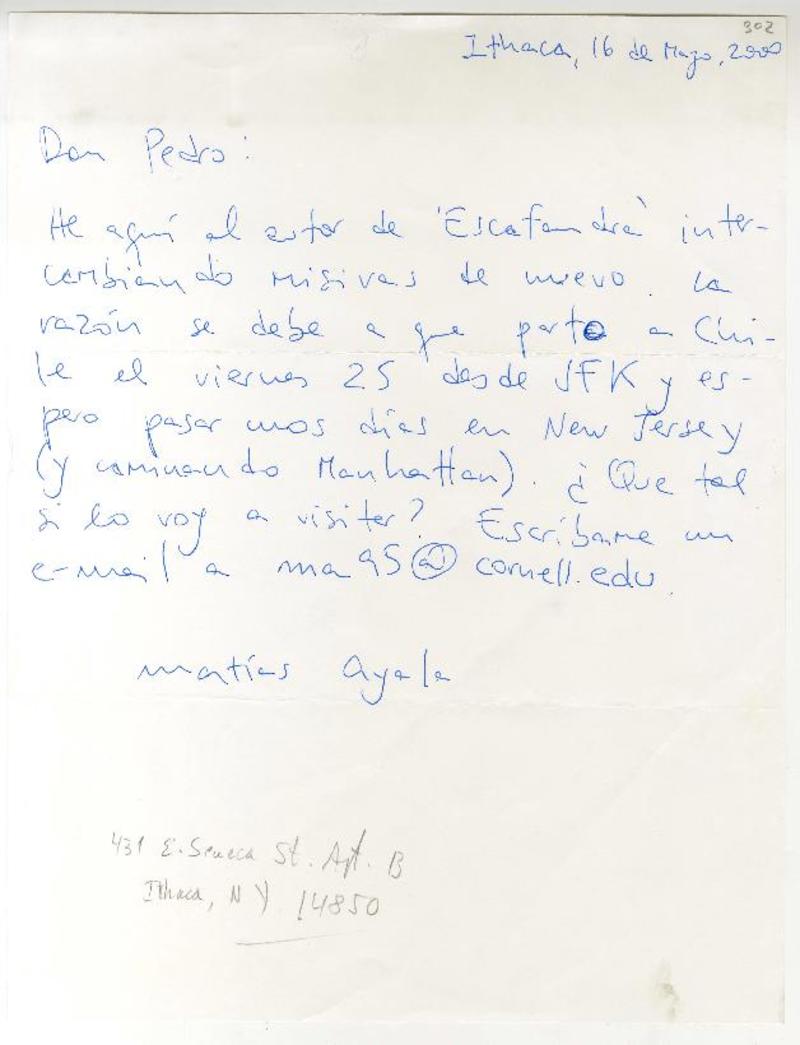 302
Ithaca, 16 de Mayo, 2000
Don Pedro:
He aquí al autor de 'Escafandra' inter-
cambiando misivas de nuevo. La
razón se debe a que parto a Chi-
le el viernes 25 desde JFK y es-
pero pasar unos días en New Jersey
(y caminando Manhattan). ¿Que tal
si lo voy a visitar? Escríbame un
e-mail a ma95@cornell.edu.
matías ayala
431 E. Seneca St. Apt. B
Ithaca, NY 14850